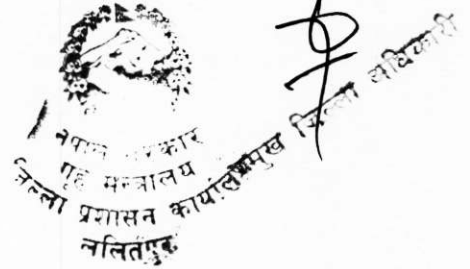 नेपाल सरकार
गृह मन्त्रालय
जिल्ला प्रशासन कार्यालय
ललितपुर
प्रमुख जिल्ला अधिकारी